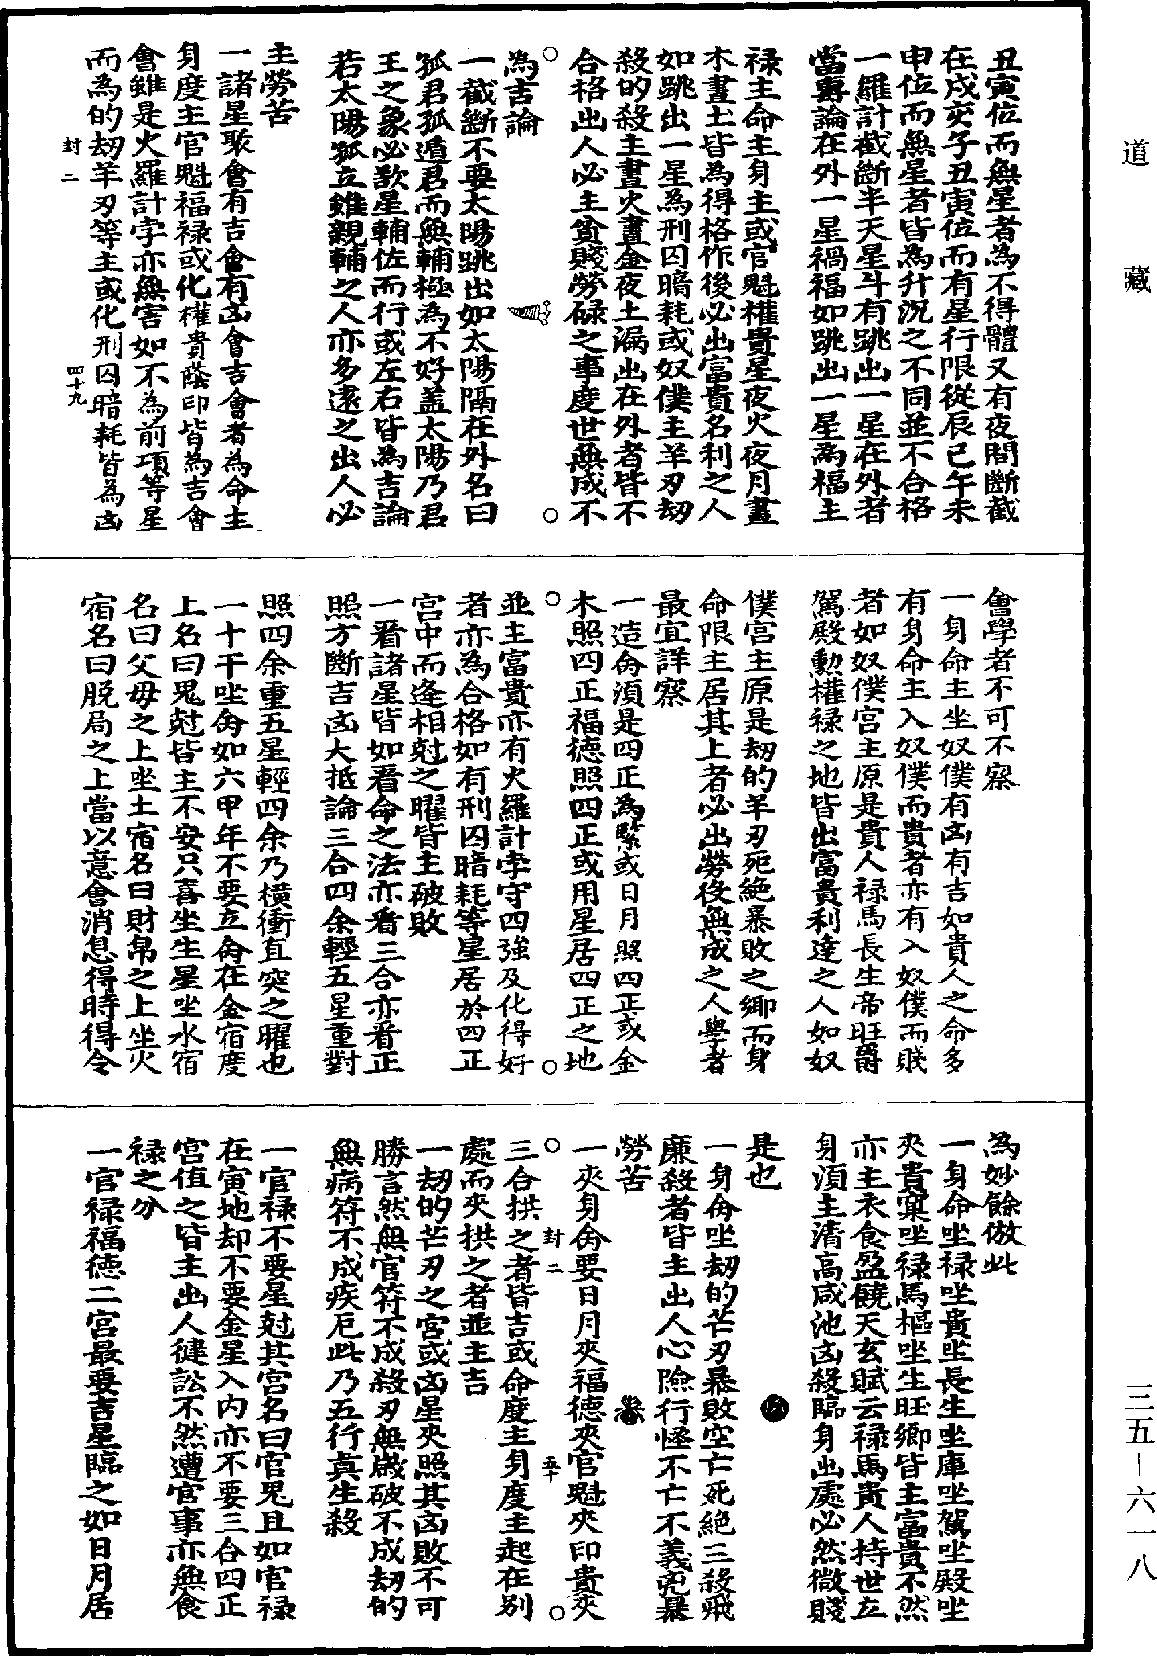 丑寅位而無星者為不得體又有夜間斷截
在戌亥子丑寅位而有星行限從辰巳午未
申位而無星者皆為升沉之不同並不合格
一羅計截斷半天星斗有跳出一星在外者
當專論在外一星禍福如跳出一星為福主
祿主命主身主或官魁權貴星夜火夜月晝
木晝土皆為得格作後必出富貴名利之人
如跳出一星為刑囚暗耗或奴僕主羊刃劫
殺的殺主晝火晝金夜土漏出在外者皆不
合格出人必主貧賤勞碌之事度世無成不
為吉論
一截斷不要太陽跳出如太陽隔在外名曰
孤君孤遁君而無輔極為不好蓋太陽乃君
王之象必歡星輔佐而行或左右皆為吉論
若太陽孤立雖親輔之人亦多遠之出人必
主勞苦
一諸星聚會有吉會有凶會吉會者為命主
身度主官魁福祿或化權貴蔭印皆為吉會
會雖是火羅計孛亦無害如不為前項等星
而為的劫羊刃等主或化刑囚暗耗皆為凶
封二
四十九
會學者不可不察
一身命主坐奴僕有凶有吉如貴人之命多
有身命主入奴僕而貴者亦有入奴僕而賤
者如奴僕宮主原是貴人祿馬長生帝旺爵
駕殿勳權祿之地皆出富貴利達之人如奴
僕宮主原是劫的羊刃死絕暴敗之鄉而身
命限主居其上者必出勞役無成之人學者
最宜詳察
一造命須是四正為緊或日月照四正或金
木照四正福德照四正或用星居四正之地
並主富貴亦有火羅計孛守四強及化得好
者亦為合格如有刑囚暗耗等星居於四正
宮中而逢相尅之曜皆主破敗
一看諸星皆如看命之法亦看三合亦看正
照方斷吉凶大抵論三合四余輕五星重對
照四余重五星輕四余乃橫衝直突之曜也
一十干坐命如六甲年不要立命在金宿度
上名曰鬼尅皆主不安只喜坐生星坐水宿
名曰父母之上坐土宿名曰財帛之上坐火
宿名曰脫局之上當以意會消息得時得令
為妙餘倣此
一身命坐祿坐貴坐長生坐庫坐駕坐殿坐
夾貴窠坐祿馬樞坐生旺鄉皆主富貴不然
亦主衣食盈饒天玄賦云祿馬貴人持世立
身須主清高咸池凶殺臨身出處必然微賤
是也
一身命坐劫的芒刃暴敗空亡死絕三殺飛
廉殺者皆主出人心險行怪不亡不義兇暴
勞苦
一夾身命要日月夾福德夾官魁夾印貴夾
封二
五十
三合拱之者皆吉或命度主身度主起在別
處而夾拱之者並主吉
一劫的芒刃之宮或凶星夾照其凶敗不可
勝言然無官符不成殺刃無歲破不成劫的
無病符不成疾厄此乃五行真生殺
一官祿不要星尅其宮名曰官鬼且如官祿
在寅地却不要金星入內亦不要三合四正
宮值之皆主出人健訟不然遭官事亦無食
祿之分
一官祿福德二宮最要吉星臨之如日月居
道
藏
三五－六一八